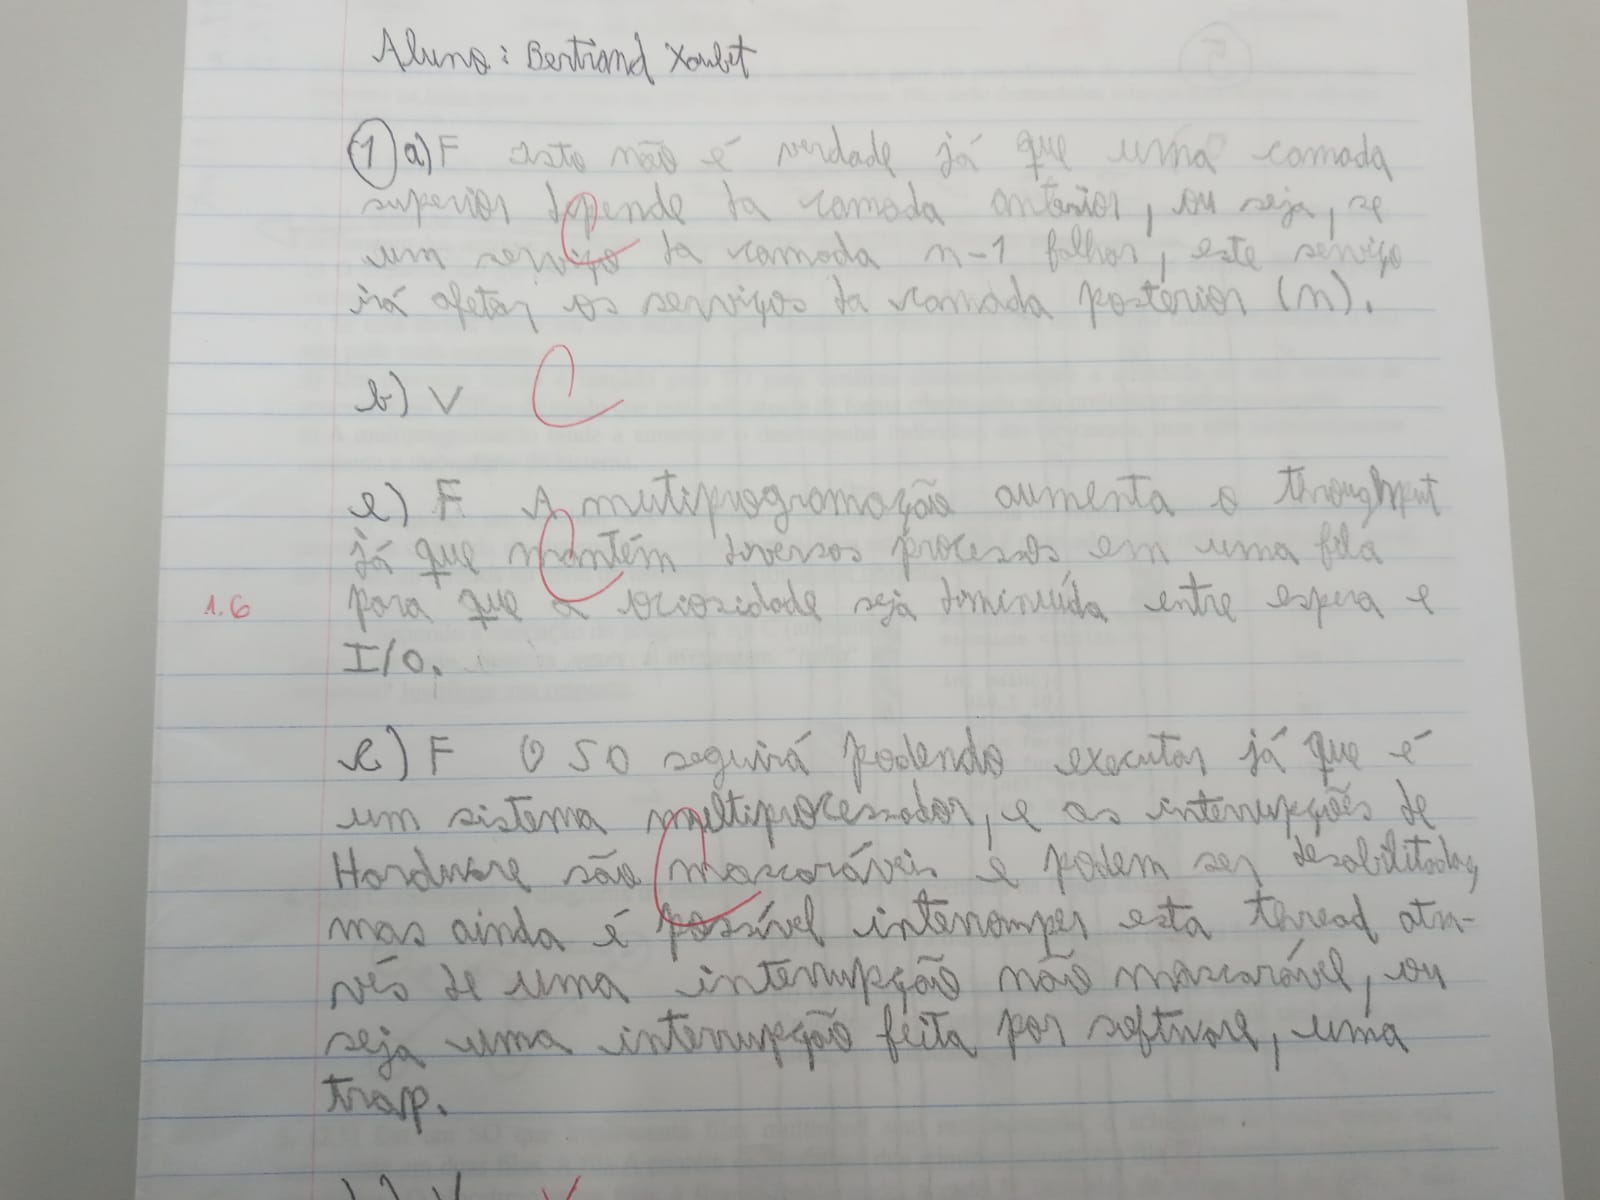 Aluno: Bertrand Xoubet
1 a) F Isto não é verdade já que uma camada
superior depende da camada anterior, ou seja, se
um serviço da camada n-1 falhar, este serviço
irá afetar os serviços da camada posterior (n).
b) V C
c) F A multiprogramação aumenta o throughput
já que mantém diversos processos em uma fila
1.6 para que a ociosidade seja diminuída entre espera e
I/O.
e) F O SO seguirá podendo executar já que é
um sistema multiprocessador, e as interrupções de
Hardware são mascaráveis e podem ser desabilitadas,
mas ainda é possível interromper esta thread atra-
vés de uma interrupção não mascarável, ou
seja uma interrupção feita por software, uma
trap.